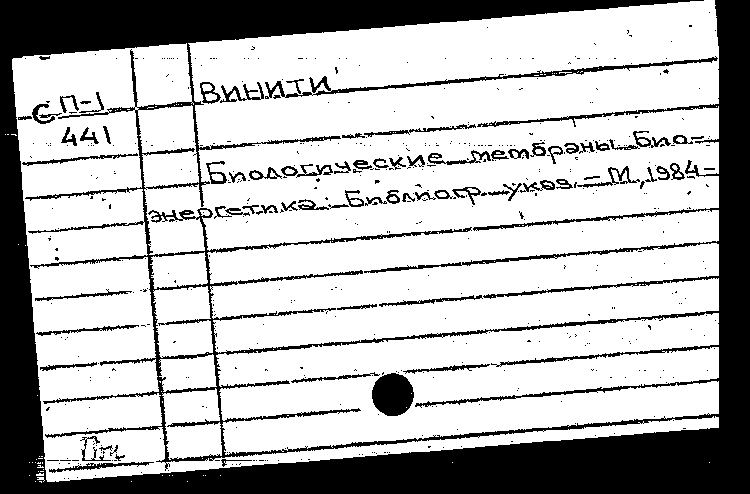 С П-1
441
ВИНИТИ
Биологические мембраны. Био-
энергетика: Библиогр. указ. – М., 1984-